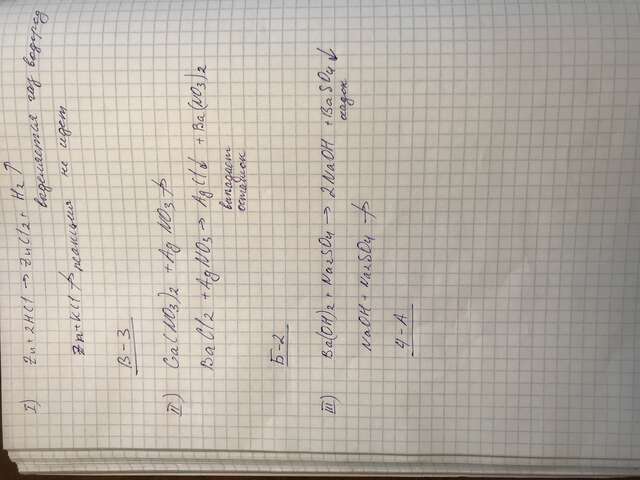 I) Zn + 2HCl → ZnCl2 + H2 ↑
выделяется газ водород
Zn + KCl ↛ реакция не идет
В - 3
II) Ca(NO3)2 + AgNO3 ↛
BaCl2 + AgNO3 → AgCl↓ + Ba(NO3)2
выпадает
осадок
Б - 2
III) Ba(OH)2 + Na2SO4 → 2NaOH + BaSO4 ↓
осадок
NaOH + Na2SO4 ↛
4 - А